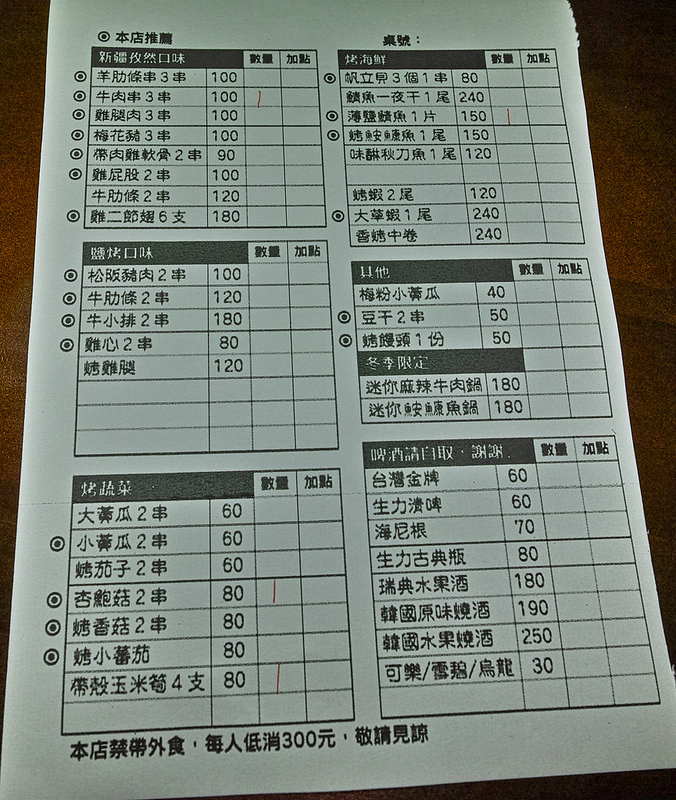 ◎本店推薦
桌號：
新疆孜然口味 數量 加點
◎ 羊肋條串3串 100
◎ 牛肉串3串 100
◎ 雞腿肉3串 100
◎ 梅花豬3串 100
◎ 帶肉雞軟骨2串 90
◎ 雞屁股2串 100
牛肋條2串 120
◎ 雞二節翅6支 180
鹽烤口味 數量 加點
◎ 松阪豬肉2串 100
◎ 牛肋條2串 120
◎ 牛小排2串 180
◎ 雞心2串 80
烤雞腿 120
烤蔬菜 數量 加點
大黃瓜2串 60
◎ 小黃瓜2串 60
烤茄子2串 60
◎ 杏鮑菇2串 80
◎ 烤香菇2串 80
◎ 烤小蕃茄 80
帶殼玉米筍4支 80
烤海鮮 數量 加點
◎ 帆立貝3個1串 80
鯖魚一夜干1尾 240
◎ 薄鹽鯖魚1片 150
◎ 烤鮟鱇魚1尾 150
味醂秋刀魚1尾 120
烤蝦2尾 120
◎ 大草蝦1尾 240
香烤中卷 240
其他 數量 加點
梅粉小黃瓜 40
◎ 豆干2串 50
◎ 烤饅頭1份 50
冬季限定
迷你麻辣牛肉鍋 180
迷你鮟鱇魚鍋 180
啤酒請自取，謝謝. 數量 加點
台灣金牌 60
生力清啤 60
海尼根 70
生力古典瓶 80
瑞典水果酒 180
韓國原味燒酒 190
韓國水果燒酒 250
可樂/雪碧/烏龍 30
本店禁帶外食，每人低消300元，敬請見諒